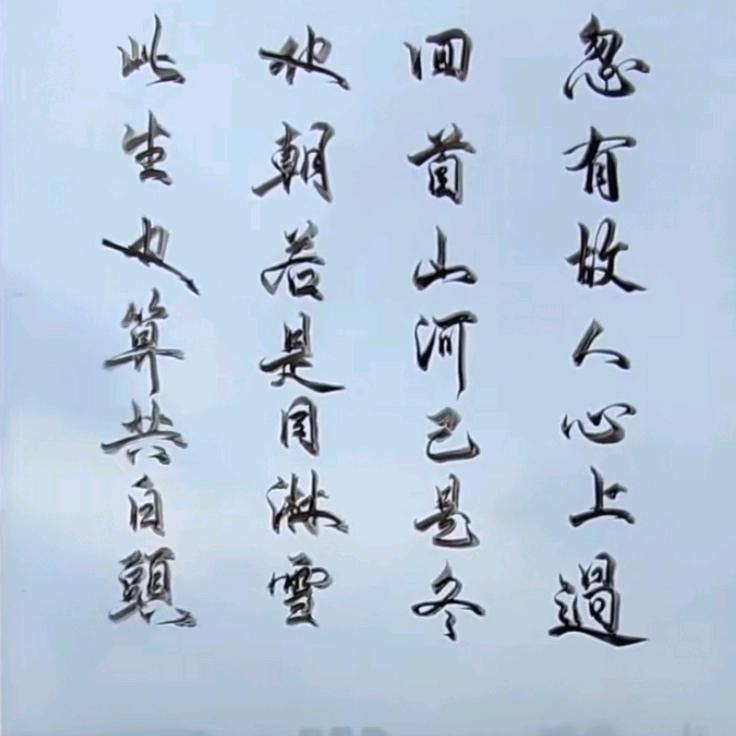 忽有故人心上過
回首山河已是冬
他朝若是同淋雪
此生也算共白頭